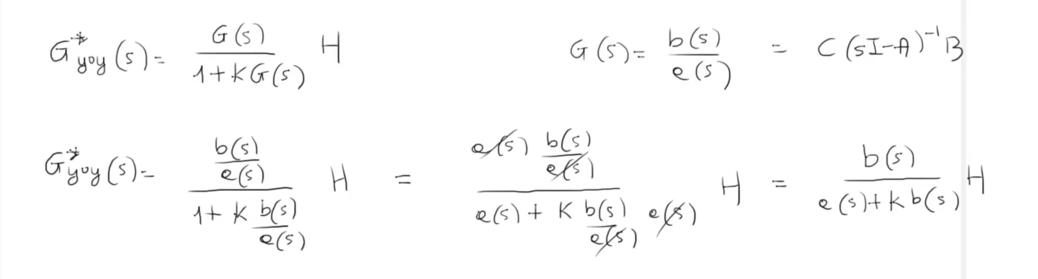 G*y⁰y(s) = G(s)/(1+kG(s)) H    G(s) = b(s)/e(s) = C(sI-A)⁻¹B
G*y⁰y(s) = (b(s)/e(s))/(1+k b(s)/e(s)) H = (e(s) b(s)/e(s))/(e(s)+k b(s)/e(s) e(s)) H = b(s)/(e(s)+k b(s)) H